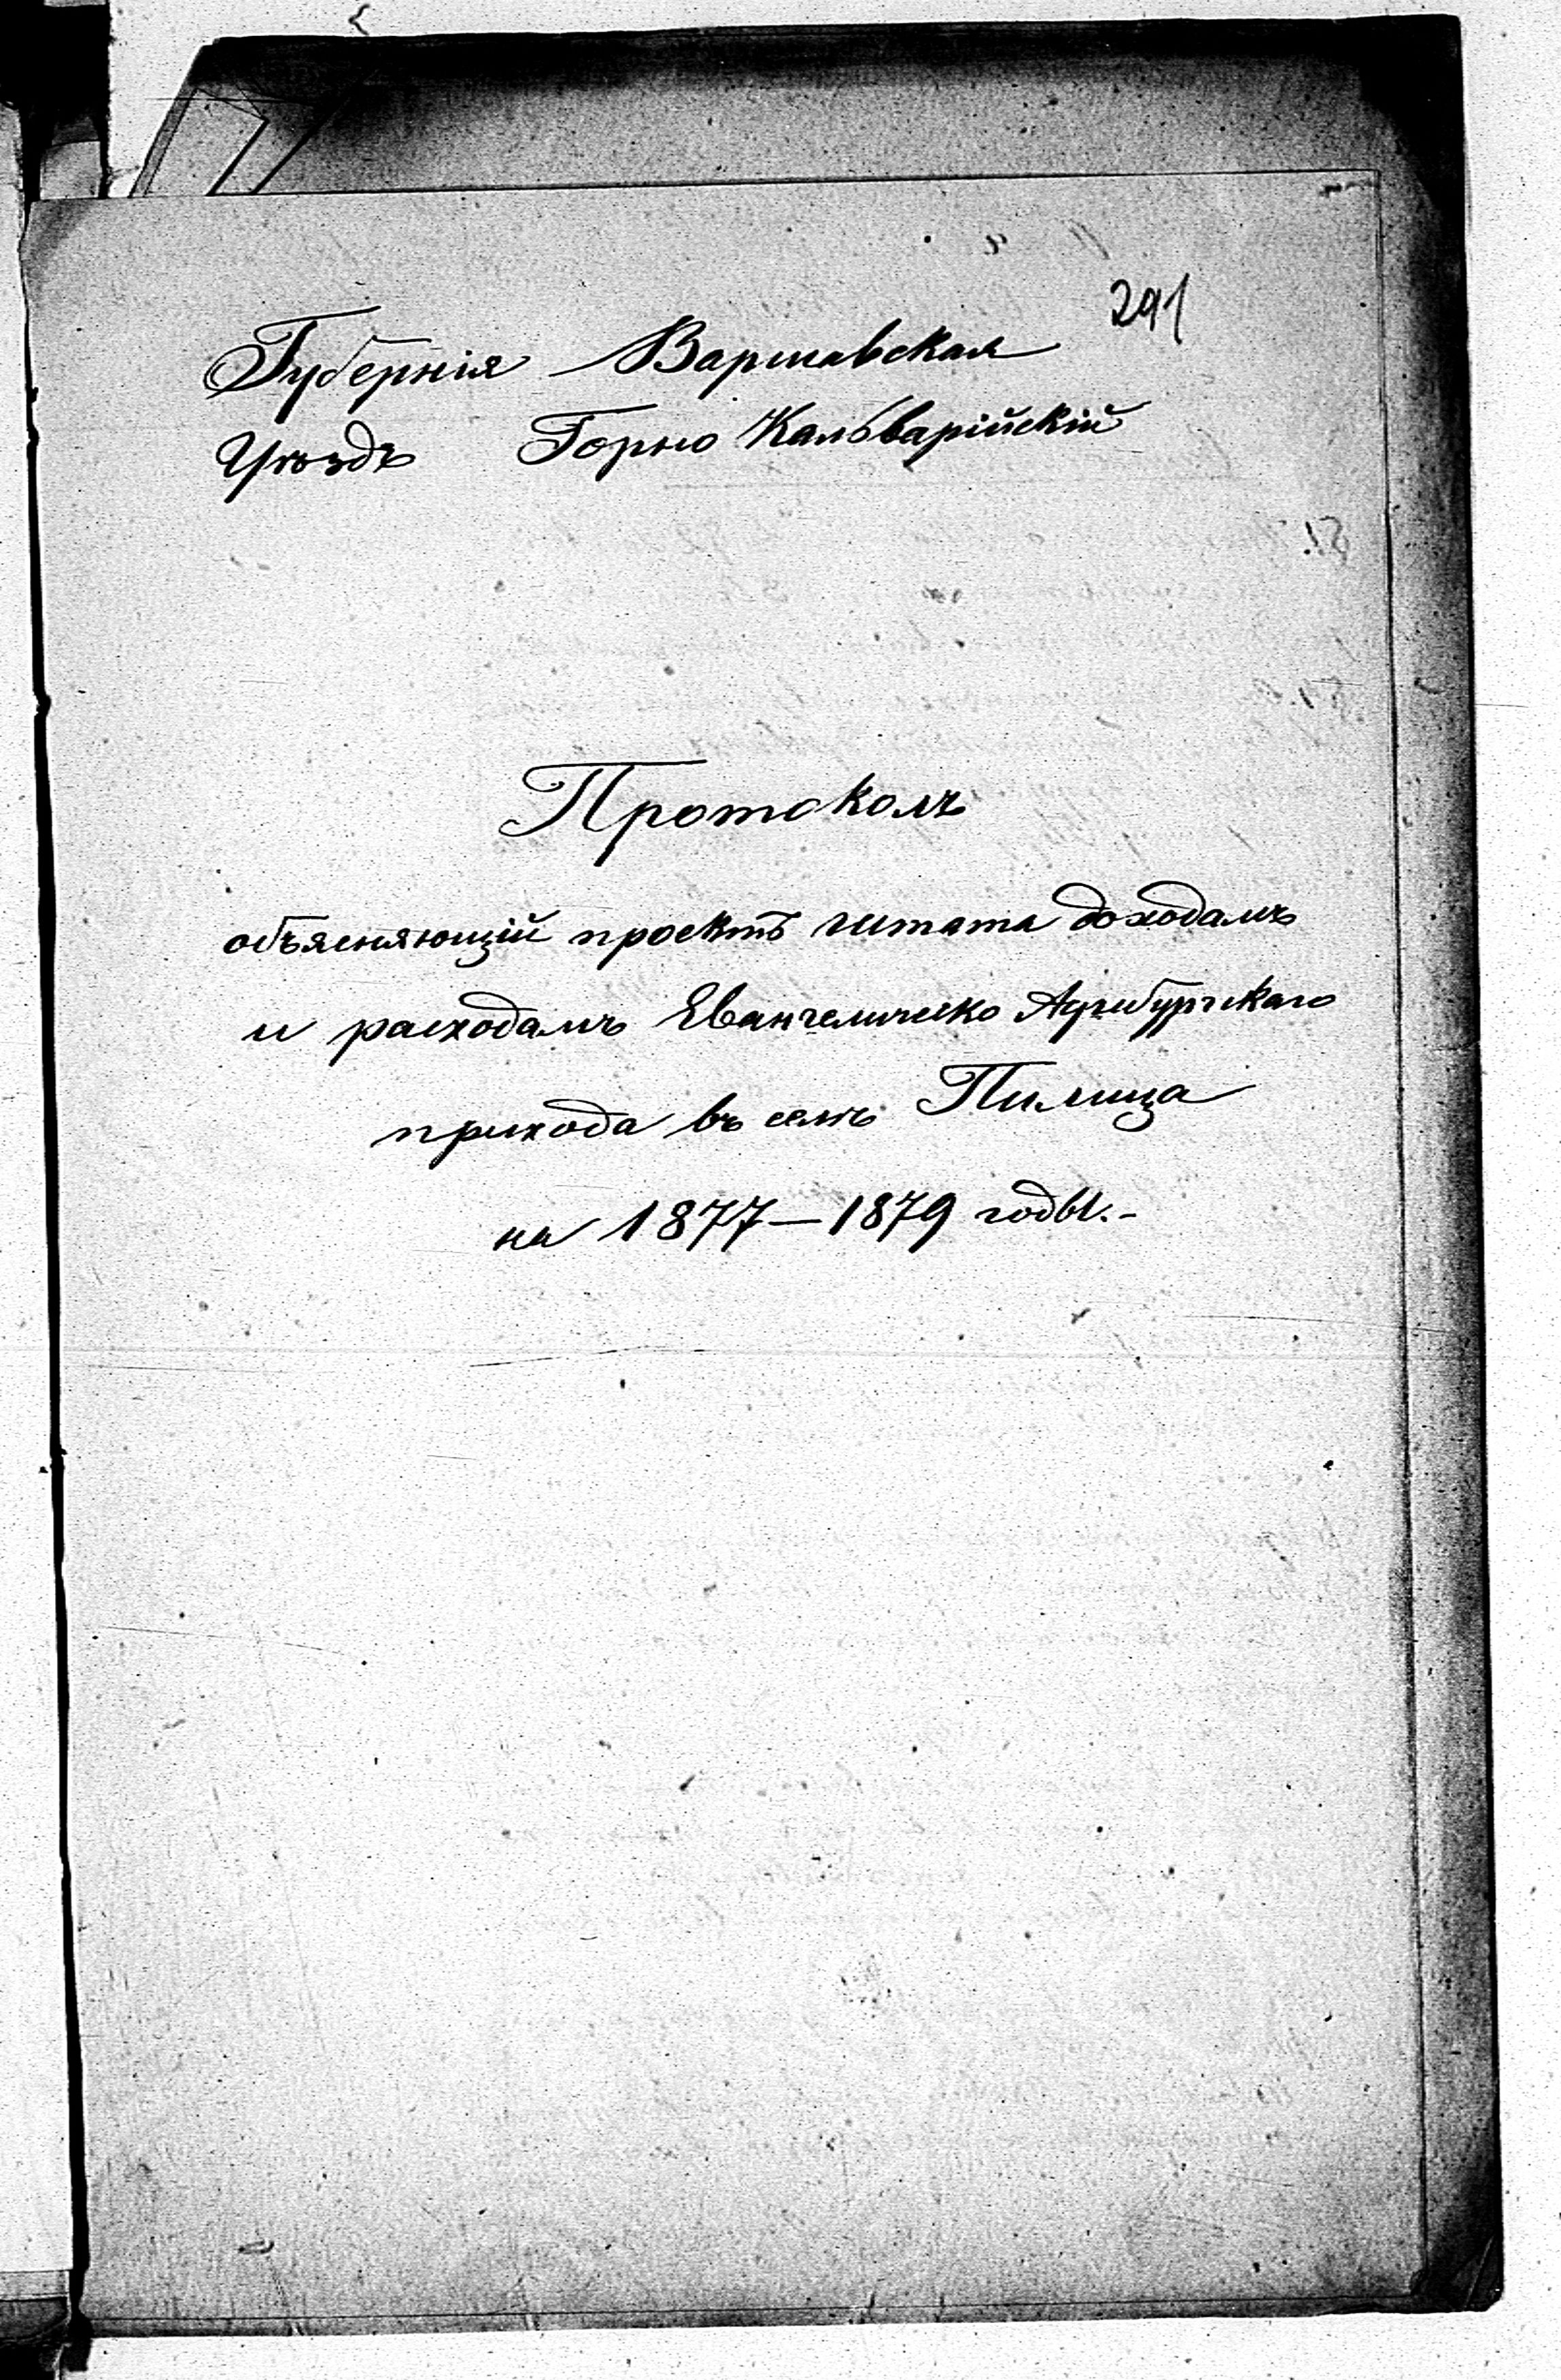 291
Губернія Варшавская
Уѣздъ Горно Кальварійскій
Протоколъ
объясняющій проектъ штата доходамъ
и расходамъ Евангелическо Аугсбургскаго
прихода въ селѣ Пилица
на 1877—1879 годы.-